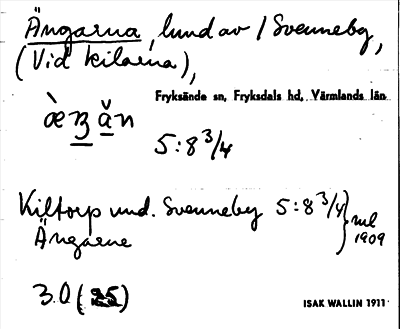 Ängarna, lund av / Svenneby,
(Vid kilarna),
Fryksände sn, Fryksdals hd, Värmlands län
5:8 3/4
Kiltorp und. Svenneby 5:8 3/4
Ängarne
1909
3.0 (25)
ISAK WALLIN 1911